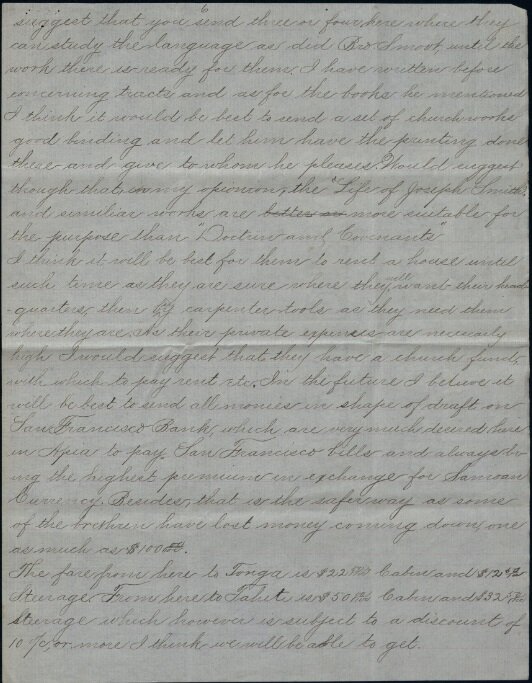 suggest that you send three or four here where they
can study the language as did Bro. Smoot, until the
work there is ready for them. I have written before
concerning tracts and as for the books he mentioned
I think it would be best to send a set of church works
good binding and let him have the printing done
there and give to whom he pleases. Would suggest
though that, in my opionion, the "Life of Joseph Smith"
and similiar works are better as more suitable for
the purpose than "Doctrin and Covenants"
I think it will be best for them to rent a house until
such time as they are sure where they will want their head
-quarters, then buy carpenter tools as they need them
where they are. As their private expenses are necessarily
high I would suggest that they have a church fund,
with which to pay rent etc. In the future I believe it
will be best to send all monies in shape of draft on
San Francisco Bank, which are very much desired here
in Apia to pay San Francisco bills and always br
ing the highest premium in exchange for Samoan
Currency. Besides, that is the safer way as some
of the brethren have lost money coming down, one
as much as $100.00.
The fare from here to Tonga is $22 Cabin and $12
Sterage. From here to Tahiti is $50 Cabin and $32
sterage which however is subject to a discount of
10% or more I think we will be able to get.